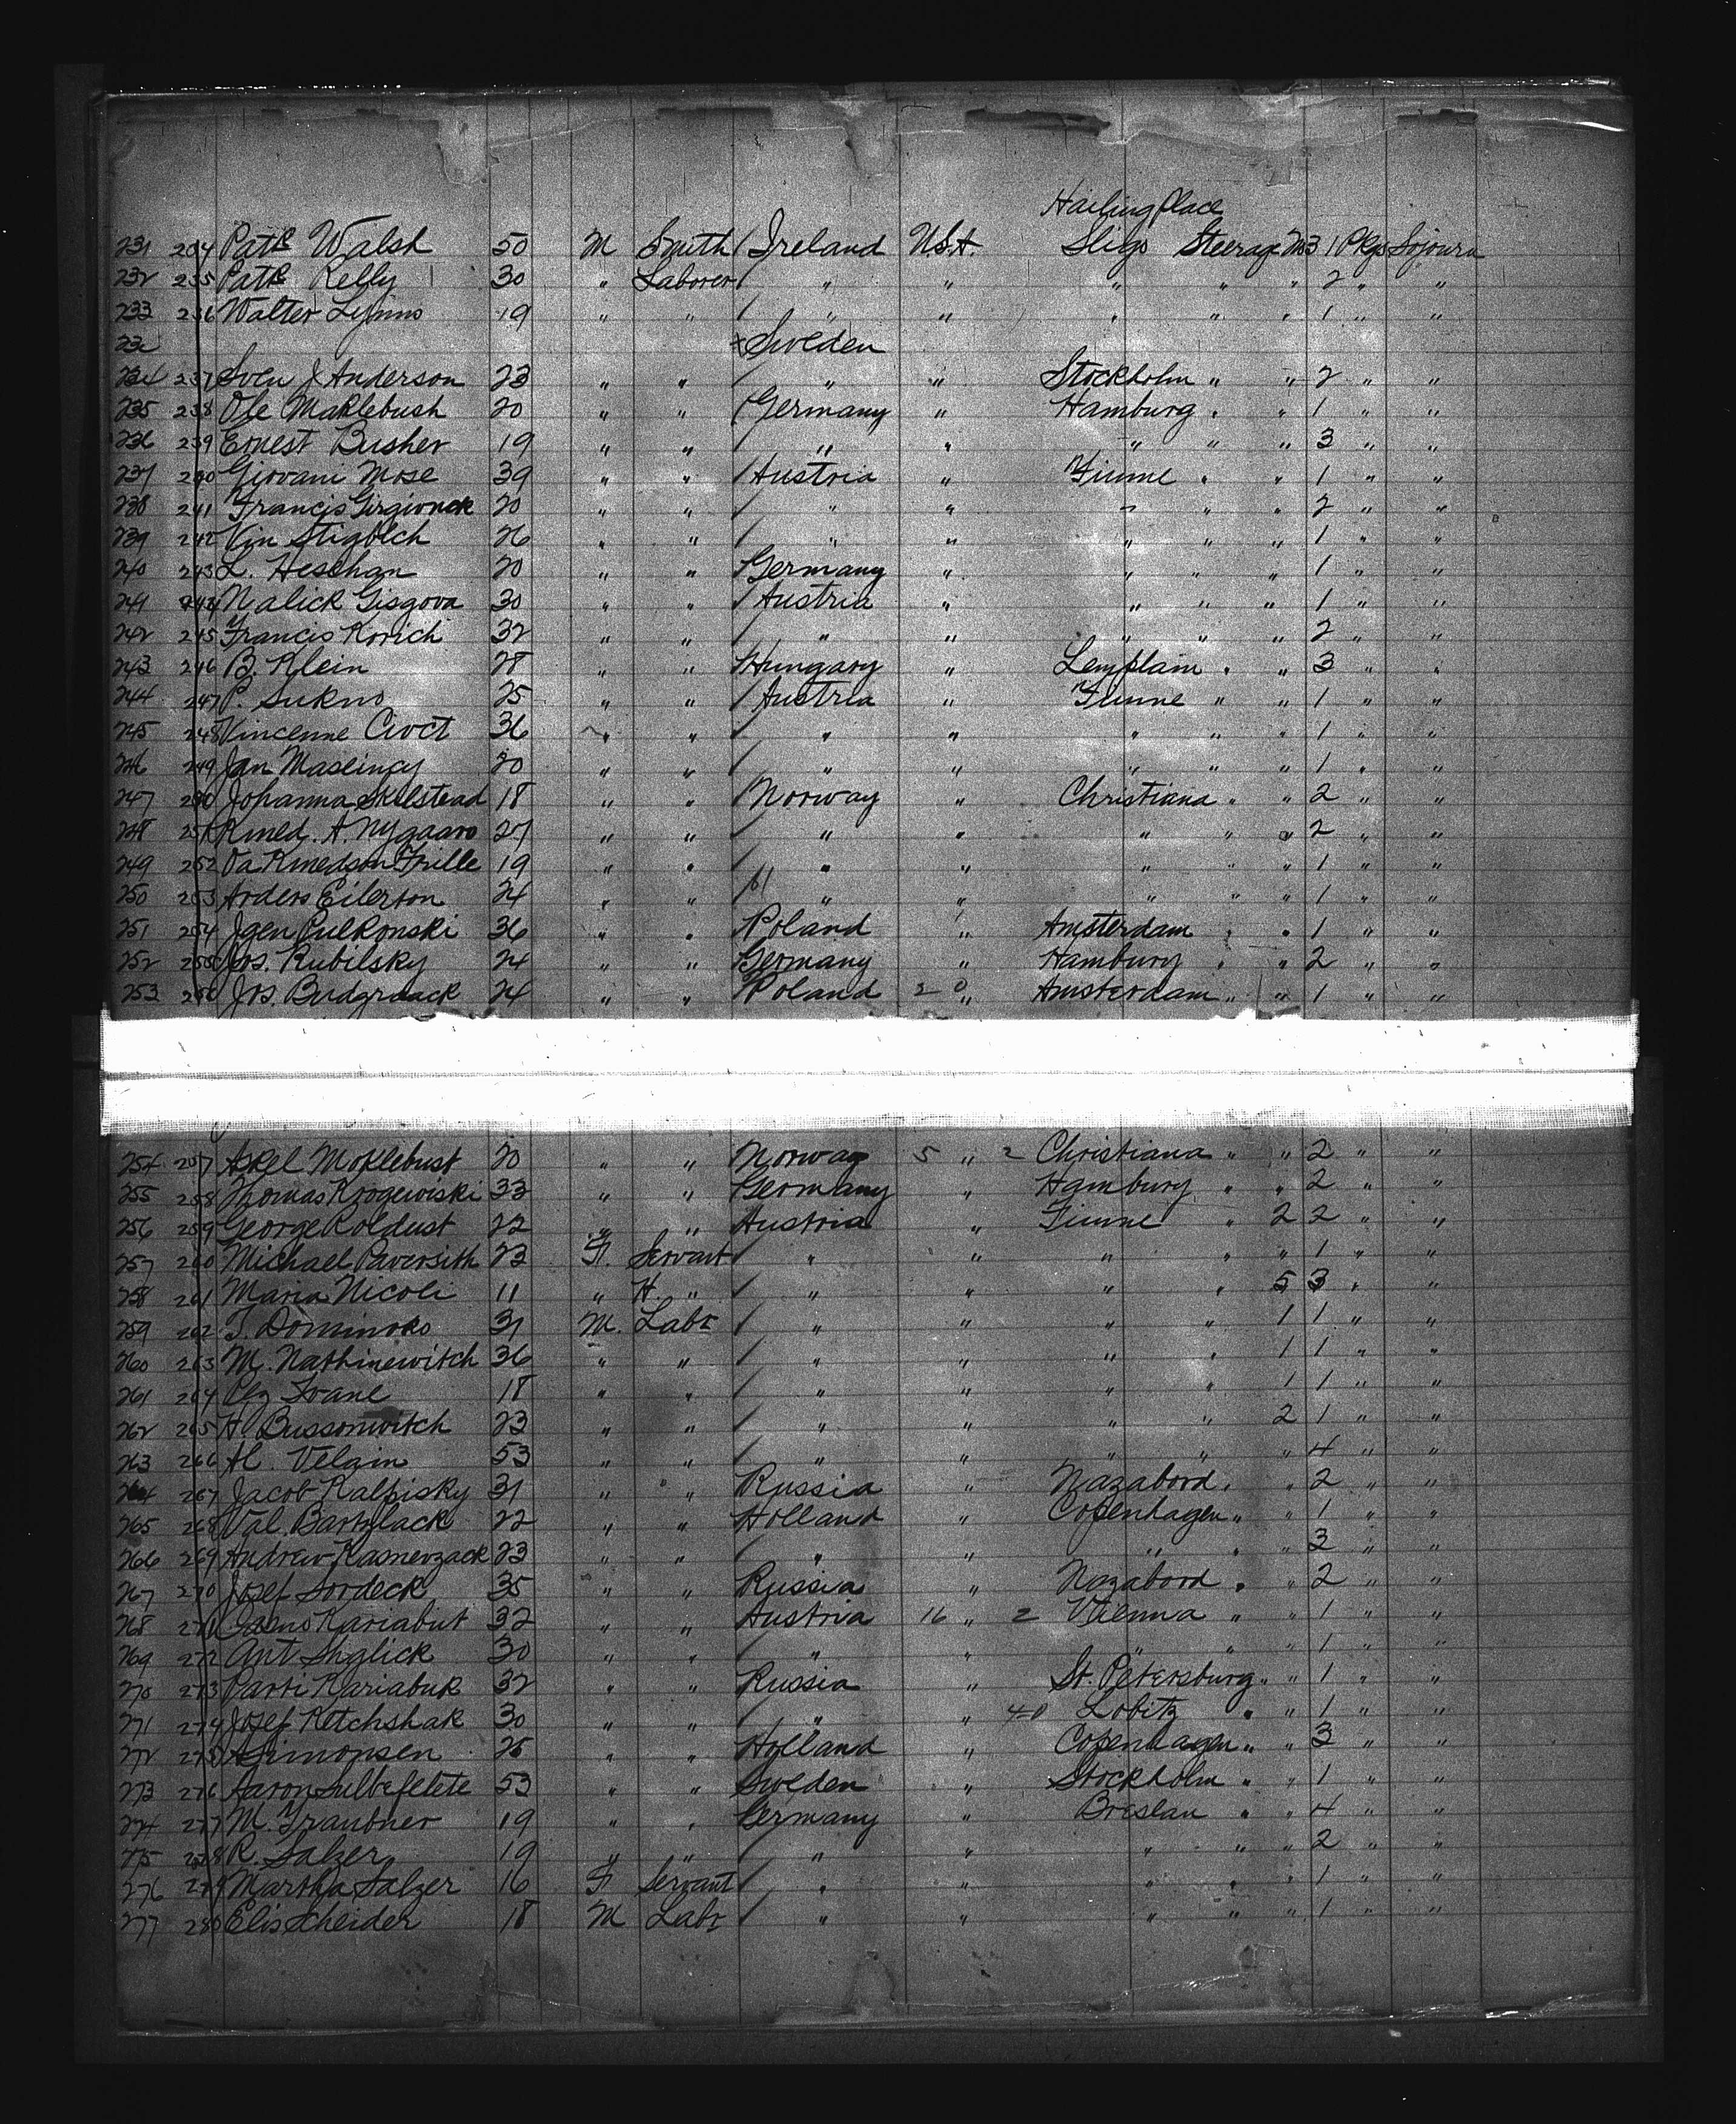 Hailing Place
231 234 Patk Walsh 50 M Smith / Ireland U.S.A. Sligo Steerage No 3 1 Pkgs Sojourn
232 235 Patk Kelly 30 " Laborer / " " " " " 2 " "
233 236 Walter Lynns 19 " " / " " " " " 1 " "
Sweden
234 237 Sven J Anderson 23 " " / " " Stockholm " " 2 " "
235 238 Ole Maklebush 20 " " / Germany " Hamburg " " 1 " "
236 239 Ernest Busher 19 " " / " " " " " 3 " "
237 240 Giovani Mose 39 " " / Austria " Fiume " " 1 " "
238 241 Francis Girgionek 20 " " / " " " " " 2 " "
239 242 Vin Stigblch 26 " " / " " " " " 1 " "
240 243 L. Heschan 20 " " / Germany " " " " 1 " "
241 244 Nalick Gisgova 30 " " / Austria " " " " 1 " "
242 245 Francis Rovich 32 " " / " " " " " 2 " "
243 246 B. Klein 28 " " / Hungary " Lemplain " " 3 " "
244 247 P. Sukno 25 " " / Austria " Fiume " " 1 " "
245 248 Vincenne Civct 36 " " / " " " " " 1 " "
246 249 Jan Maseincy 20 " " / " " " " " 1 " "
247 250 Johanna Skelstead 18 " " / Norway " Christiana " " 2 " "
248 251 Kmed. A. Nygaard 27 " " / " " " " " 2 " "
249 252 Va Kmedson Frille 19 " " / " " " " " 1 " "
250 253 Anders Eilerson 24 " " / " " " " " 1 " "
251 254 Igen Pulkonski 36 " " Poland " Amsterdam " " 1 " "
252 255 Jos. Rubilsky 24 " " Germany " Hamburg " " 2 " "
253 256 Jos. Budgraack 24 " " Poland 2 0 " Amsterdam " " 1 " "
254 257 Akel Moklebust 20 " " Norway 5 " 2 Christiana " " 2 " "
255 258 Thomas Krogewiski 33 " " Germany " Hamburg " " 2 " "
256 259 George Roldust 22 " " Austria " Fiume " 2 2 " "
257 260 Michael Paversith 23 F. Servant / " " " " " 1 " "
258 261 Maria Nicoli 11 " H. " / " " " " 5 3 " "
259 262 T. Dominoko 31 M. Labr / " " " " 1 1 " "
260 263 M. Nathinewitch 36 " " / " " " " 1 1 " "
261 264 Ivane 18 " " / " " " " 1 1 " "
262 265 H. Bussonwitch 23 " " / " " " " 2 1 " "
263 266 Al. Velain 53 " " / " " " " " 4 " "
264 267 Jacob Kalpisky 31 " " Russia " Nazabord " " 2 " "
265 268 Val. Bartzlack 22 " " Holland " Copenhagen " " 1 " "
266 269 Andrew Kasnevzack 23 " " / " " " " " 3 " "
267 270 Josef Sordeck 35 " " Russia " Nazabord " " 2 " "
268 271 Casms Kariabut 32 " " Austria 16 " 2 Vienna " " 1 " "
269 272 Ant Shglick 30 " " / " " " " " 1 " "
270 273 Parti Kariabuk 32 " " Russia " St. Petersburg " " 1 " "
271 274 Josef Ketchshak 30 " " / " " 40 Lobitz " " 1 " "
272 275 A Simonsen 25 " " Holland " Copenhagen " " 3 " "
273 276 Aaron Sulbefelete 53 " " Sweden " Stockholm " " 1 " "
274 277 M. Traubner 19 " " Germany " Breslau " " 4 " "
275 278 R. Salzer 19 " " / " " " " " 2 " "
276 279 Martha Salzer 16 F Servant / " " " " " 1 " "
277 280 Elis Scheider 18 M Labr / " " " " " 1 " "